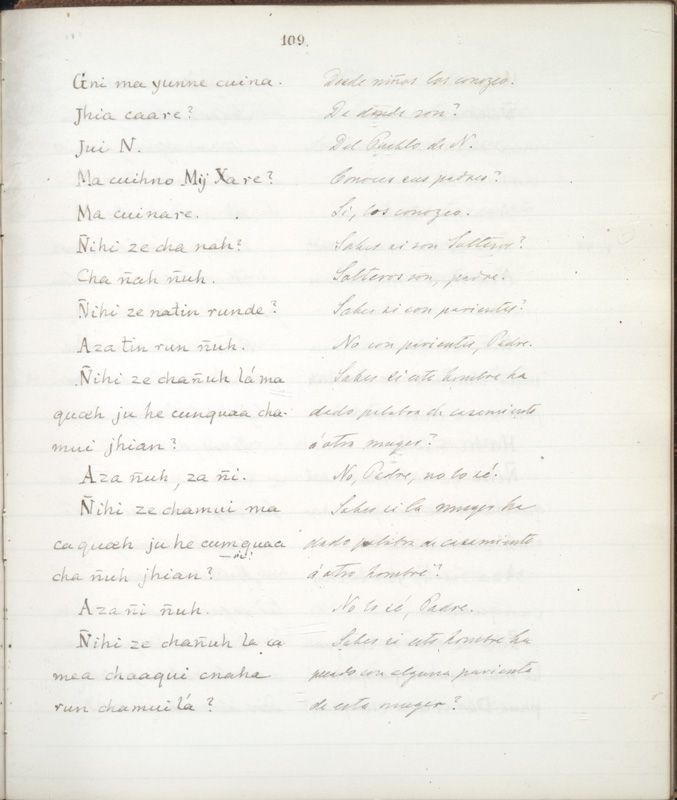 109.
Gni ma yunne cuina. Desde niños los conozco.
Jhia caare? De donde son?
Jui N. Del Pueblo de N.
Ma cuihno Mij Xa re? Conoces sus padres?
Ma cuinare. Si, los conozco.
Ñihi ze cha nah? Sabes si son Solteros?
Cha ñah ñuh. Solteros son, padre.
Ñihi ze natin runde? Sabes si son parientes?
Aza tin run ñuh. No son parientes, Padre.
Ñihi ze chañuh lá ma Sabes si este hombre ha
quæh ju he cunquaa cha- dado palabra de casamiento
mui jhian? á otra muger?
Aza ñuh, za ñi. No, Padre, no lo sé.
Ñihi ze chamui ma Sabes si la muger ha
ca quæh ju he cumquaa dado palabra de casamiento
sic:
cha ñuh jhian? á otro hombre?
Aza ñi ñuh. No lo sé, Padre.
Ñihi ze chañuh la ca Sabes si este hombre ha
mea chaaqui cnaha con alguna parienta
run chamui lá? de esta muger?